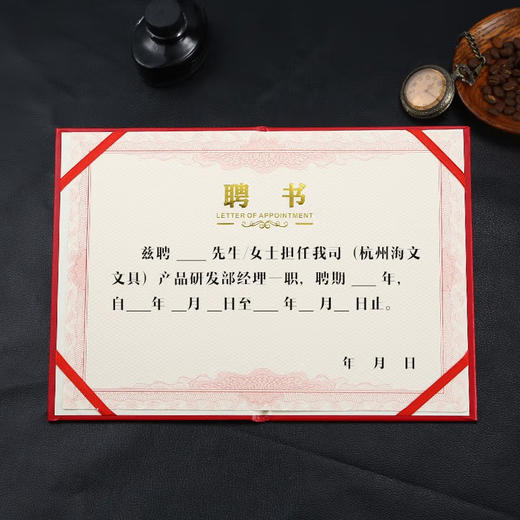 聘 书
LETTER OF APPOINTMENT
兹聘 ____ 先生/女士担任我司（杭州海文
文具）产品研发部经理一职，聘期 ___ 年，
自___年 __月 __日至___ 年__月__日止。
年 月 日